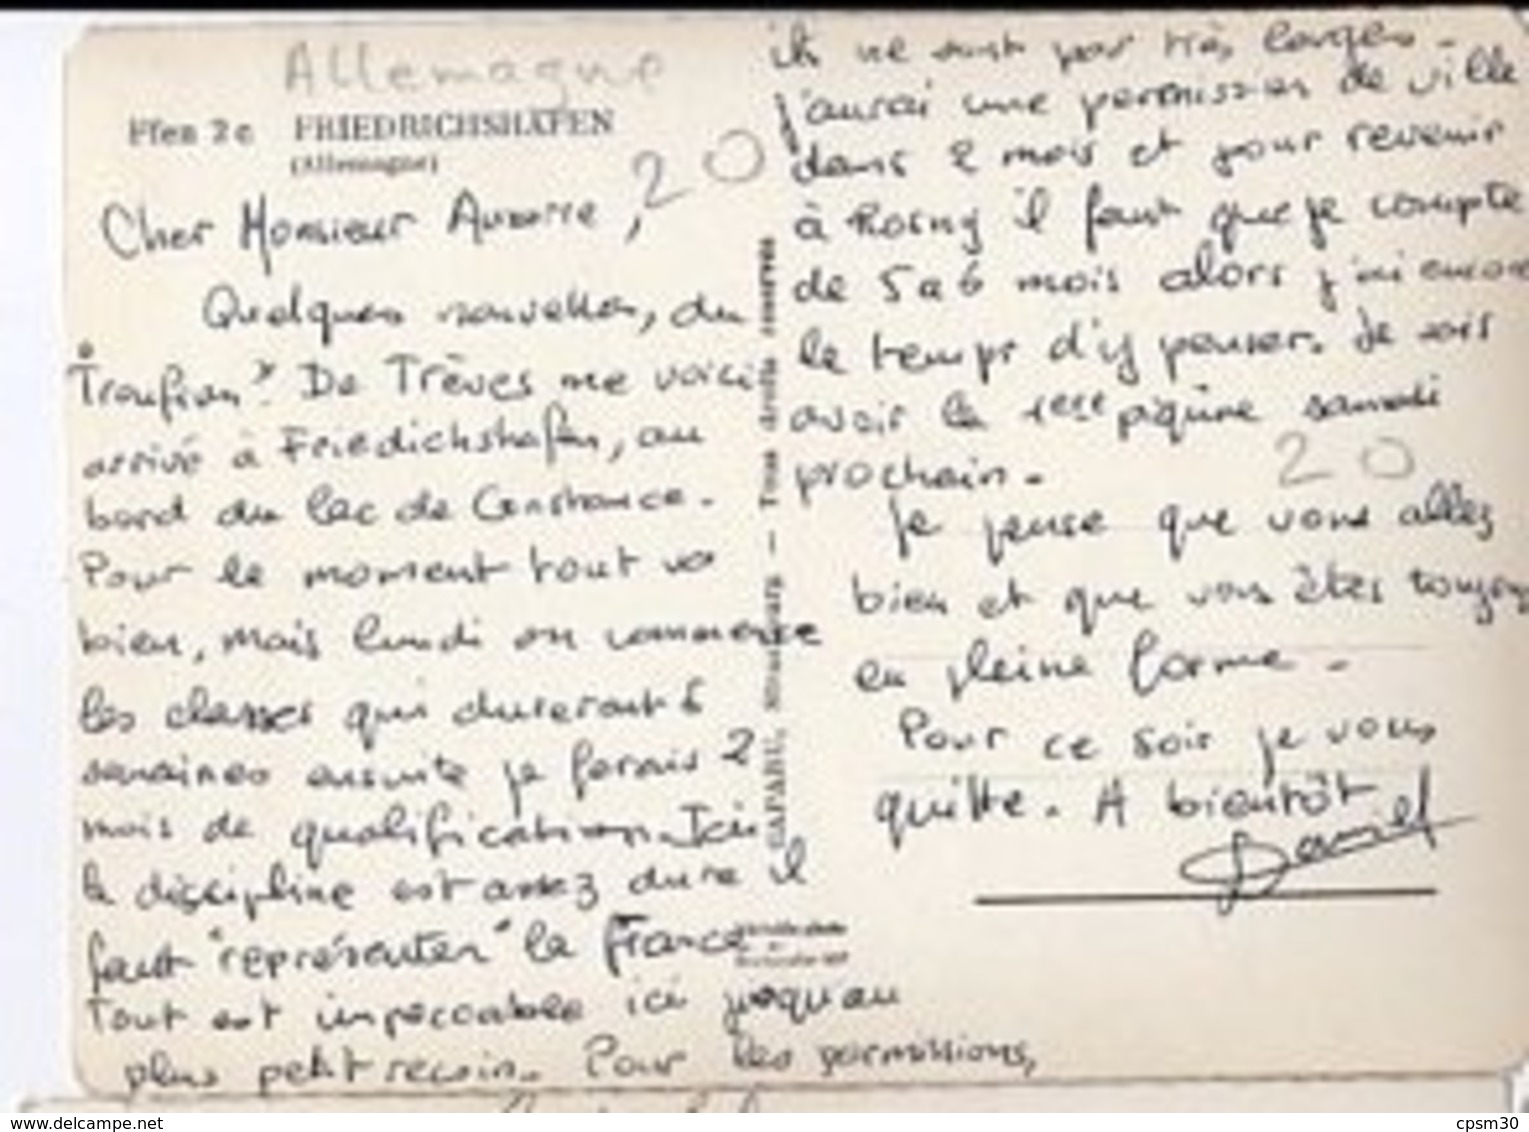 Allemagne
Ffen 2c FRIEDRICHSHAFEN
(Allemagne)
20
Cher Monsieur Auxerre,
Quelques nouvelles, du
"Troufion". De Trèves me voici
arrivé à Friedichshafen, au
bord du lac de Constance.
Pour le moment tout va
bien, mais lundi on commence
les classes qui dureront 6
semaines ensuite je ferais 2
mois de qualification. Ici
la discipline est assez dure il
faut "représenter" la France
Tout est impeccable ici jusqu'au
plus petit recoin. Pour les permissions,
ils ne sont pas très larges.
j'aurai une permission de ville
dans 2 mois et pour revenir
à Rosny il faut que je compte
de 5 a 6 mois alors j'ai encore
le temps d'y penser. Je vais
avoir la 1ere piqûre samedi
prochain.
20
Je pense que vous allez
bien et que vous êtes toujours
en pleine forme.
Pour ce soir je vous
quitte. A bientôt
Daniel
CAP. Strasbourg. — Tous droits réservés
www.delcampe.net
cpsm30